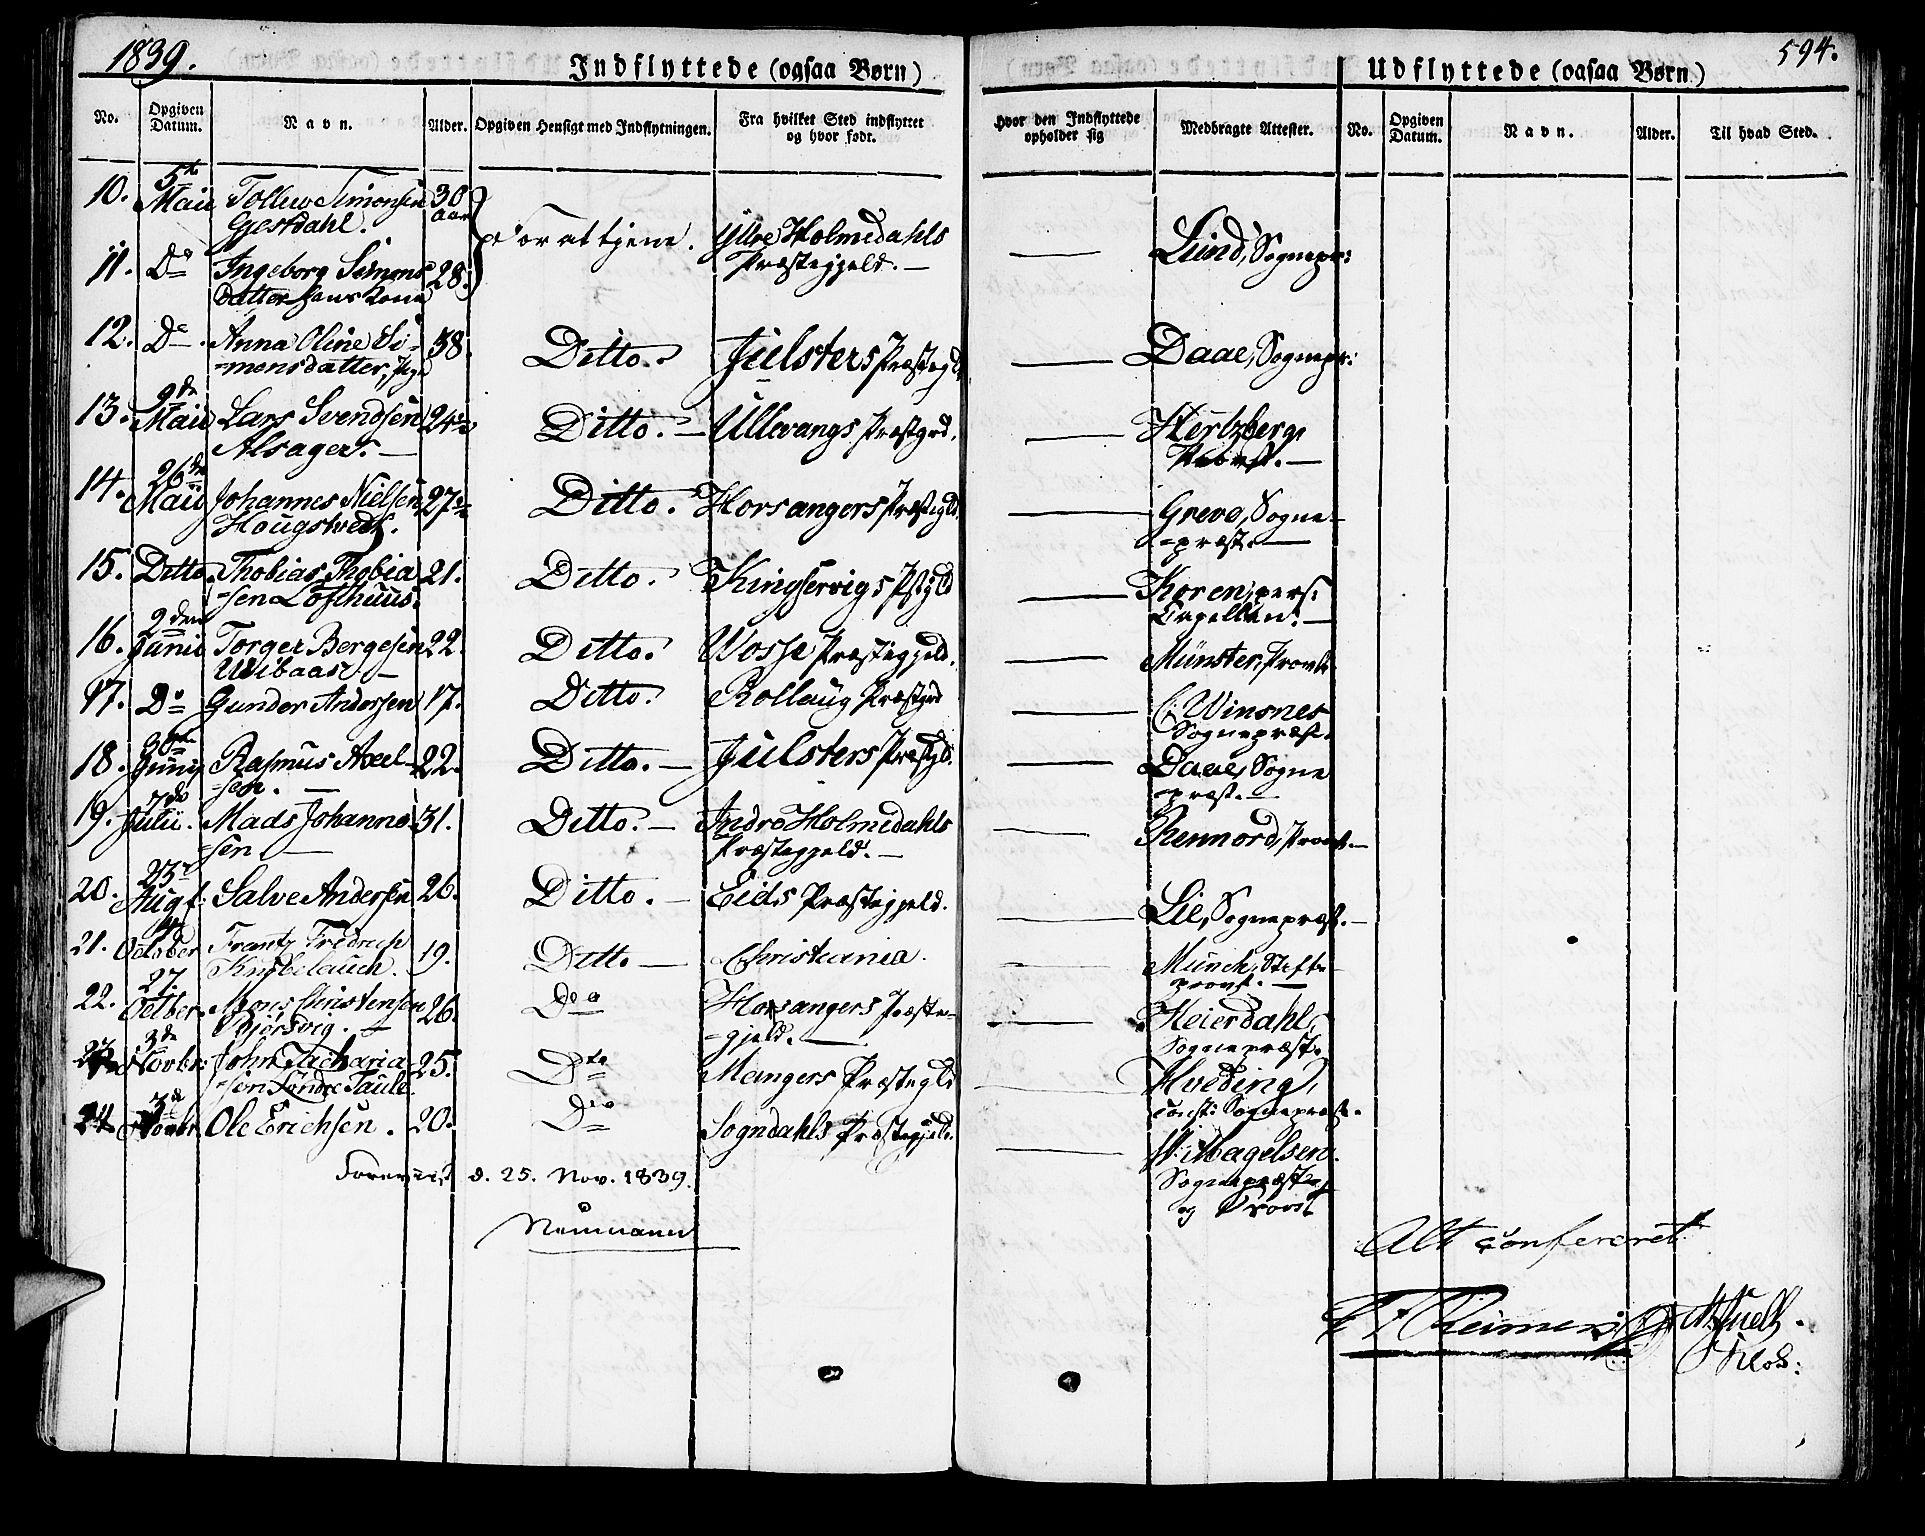 1839.
Indflyttede (ogsaa Børn)
Udflyttede (ogsaa Børn)
594.
No. Opgiven Datum. Navn. Alder. Opgiven Hensigt med Indflytningen. Fra hvilket Sted indflyttet og hvor født. Hvor den Indflyttede opholder sig Medbragte Attester. No. Opgiven Datum. Navn. Alder. Til hvad Sted.
10. 5te Maii Tollew Simonsen Gjesdahl. 30 Aar For at tjene. Yttre Holmedahls Præstegjeld. — — Lund, Sognepr:
11. Do Ingeborg Simonsdatter hans Kone 28.
12. Do Anna Oline Simonsdatter, Pige 38. Ditto. Jülsters Præstegjld — Daae, Sognepr:
13. 9de Maii Lars Svendsen Alsager. — 24 Ditto. — Ullevangs Præstgjd. — Hertzberg, Provst. —
14. 26de Maii Johannes Nielsen Hougstvedt. 27 Ditto. Horsangers Præstegjld. — Greve, Sogne-
=præst. —
15. Ditto Thobias Thobia=sen Lofthuus. 21. Ditto. Kingservigs Pstgjld — Koren, pers: Capellan. —
16. 2den Junii Torger Bergesen 22. Ditto. Vosse Præstegjeld. — Münster, Provst
17. Do Gunder Andersen 17. Ditto. Rollaug Præstgjd — Winsnes Sognepræst.
18. 30te Juny Rasmus Axel=sen. — 22. Ditto. — Jülsters Præstgjld. — Daae, Sogne præst. —
19. 7de Julii. Mads Johanne=sen — 31. Ditto. — Indre Holmedahls Præstegjeld. — — Rennord, Provst. —
20. 25de Augst: Salve Andersen 26. Ditto. — Eids Præstegjeld. — Lie, Sognepræst. —
21. October Frantz Fredrich Knobelauch. 19. Ditto — Christiania. — Münch, Stifts-
provst. —
22. 27. Octber. Mons Christensen 26. Do Horsangers Præste-
=gjeld. — — Heierdahl, Sognepræst.
23. 3de Novbr: John Zacharia=sen Søndre Taule. 25. Dto Mangers Præstegjld — Hveding, const: Sognepræst.
24. 3de Novbr. Ole Erichsen. 20. Do Sogndahls Præstegjeld. — W: Magelsen. Sognepræst og Provst
Foreviist d. 25. Nov. 1839.
Neumann
Alt confereret.